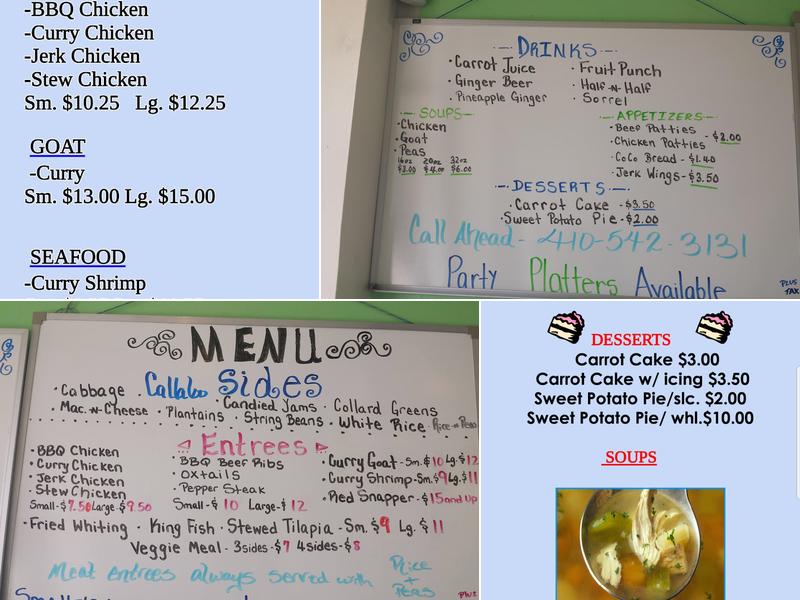 -BBQ Chicken
-Curry Chicken
-Jerk Chicken
-Stew Chicken
Sm. $10.25 Lg. $12.25
GOAT
-Curry
Sm. $13.00 Lg. $15.00
SEAFOOD
-Curry Shrimp
DRINKS
· Carrot Juice · Fruit Punch
· Ginger Beer · Half-N-Half
· Pineapple Ginger · Sorrel
SOUPS
· Chicken
· Goat
· Peas
16oz 20oz 32oz
$3.00 $4.00 $6.00
APPETIZERS
· Beef Patties - $2.00
· Chicken Patties
· CoCo Bread - $1.40
· Jerk Wings - $3.50
DESSERTS
· Carrot Cake - $3.50
· Sweet Potato Pie - $2.00
Call Ahead - 410-542-3131
Party Platters Available
PLUS TAX
MENU
Sides
· Cabbage Callaloo
· Mac-N-Cheese · Plantains Candied Yams · Collard Greens
· String Beans · White Rice · Rice-N-Peas
Entrees
· BBQ Chicken
· Curry Chicken
· Jerk Chicken
· Stew Chicken
Small-$7.50 Large-$9.50
· BBQ Beef Ribs
· Oxtails
· Pepper Steak
Small-$10 Large-$12
· Curry Goat-Sm.$10 Lg.$12
· Curry Shrimp-Sm.$9 Lg.$11
· Red Snapper-$15 and Up
· Fried Whiting · King Fish · Stewed Tilapia - Sm. $9 Lg. $11
Veggie Meal - 3 sides-$7 4 sides-$8
Meat entrees always served with Rice + Peas
PLUS
DESSERTS
Carrot Cake $3.00
Carrot Cake w/ icing $3.50
Sweet Potato Pie/slc. $2.00
Sweet Potato Pie/ whl.$10.00
SOUPS